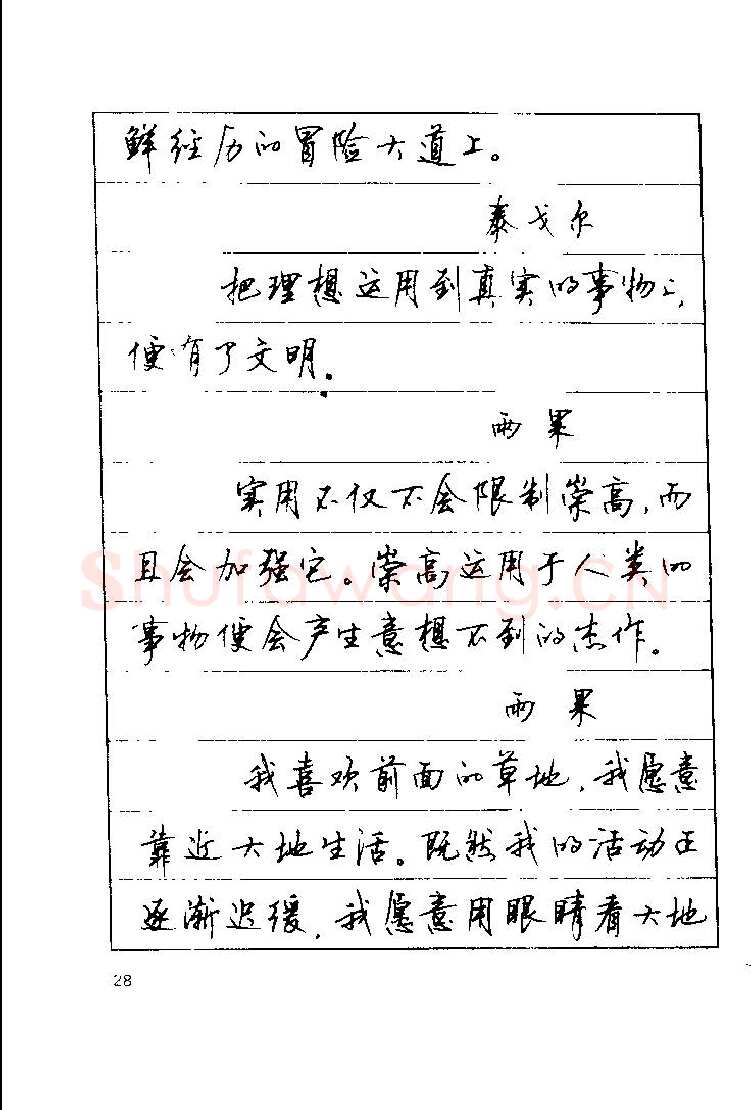 鲜经历的冒险大道上。
泰戈尔
把理想运用到真实的事物上,
便有了文明.
雨果
实用不仅不会限制崇高,而
且会加强它。崇高运用于人类的
事物便会产生意想不到的杰作。
雨果
我喜欢前面的草地,我愿意
靠近大地生活。既然我的活动正
逐渐迟缓,我愿意用眼睛看大地
28
Shufawang.CN